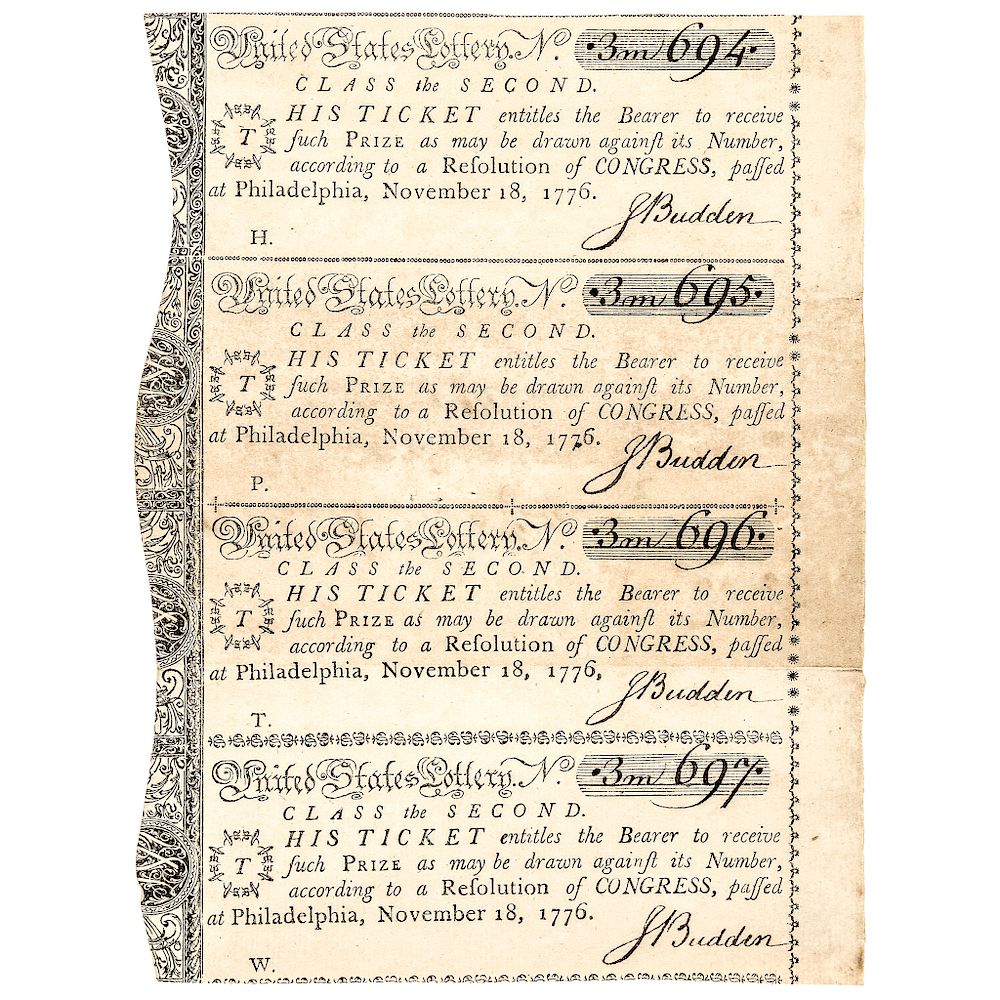 United States Lottery. No. ·3m 694·
CLASS the SECOND.
THIS TICKET entitles the Bearer to receive
ſuch PRIZE as may be drawn againſt its Number,
according to a Reſolution of CONGRESS, paſſed
at Philadelphia, November 18, 1776.
J Budden
H.
United States Lottery. No. ·3m 695·
CLASS the SECOND.
THIS TICKET entitles the Bearer to receive
ſuch PRIZE as may be drawn againſt its Number,
according to a Reſolution of CONGRESS, paſſed
at Philadelphia, November 18, 1776.
J Budden
P.
United States Lottery. No. ·3m 696·
CLASS the SECOND.
THIS TICKET entitles the Bearer to receive
ſuch PRIZE as may be drawn againſt its Number,
according to a Reſolution of CONGRESS, paſſed
at Philadelphia, November 18, 1776,
J Budden
T.
United States Lottery. No. ·3m 697·
CLASS the SECOND.
THIS TICKET entitles the Bearer to receive
ſuch PRIZE as may be drawn againſt its Number,
according to a Reſolution of CONGRESS, paſſed
at Philadelphia, November 18, 1776.
J Budden
W.